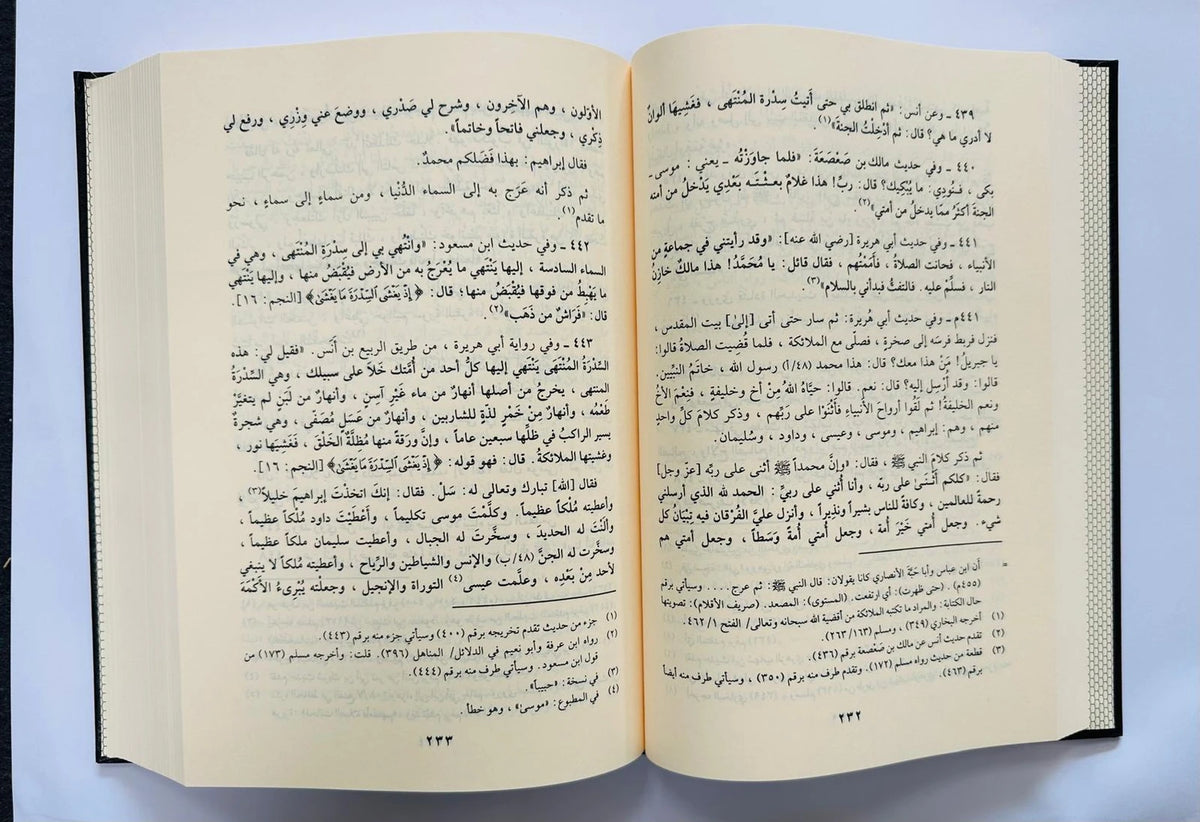 ٤٣٩ ـ وعن أنس: «ثم انطلق بي حتى أتيتُ سِدْرة المُنْتَهى ، فغَشِيهَا ألوانٌ
لا أدري ما هي؟ قال: ثم أُدْخِلْتُ الجنةَ»(١).
٤٤٠ ـ وفي حديث مالك بن صَعْصَعَةَ: «فلما جاوَزْتُه ـ يعني: موسى ـ
بكى ، فنُودِي: ما يُبْكِيك؟ قال: ربِّ! هذا غلامٌ بعثتَه بَعْدِي يَدْخلُ من أمته
الجنةَ أكثرُ ممّا يدخلُ من أمتي»(٢).
٤٤١ ـ وفي حديث أبي هريرة [رضي الله عنه]: «وقد رأيتني في جماعةٍ من
الأنبياء ، فحانت الصلاةُ ، فأَمَمْتُهم ، فقال قائل: يا مُحَمَّدُ! هذا مالكٌ خازِنُ
النار ، فسلِّمْ عليه. فالتفتُّ فبدأني بالسلام»(٣).
٤٤١م ـ وفي حديث أبي هُريرة: ثم سار حتى أتى [إلىٰ] بيت المقدس ،
فنزل فربط فرسَه إلى صخرةٍ ، فصلّى مع الملائكة ، فلما قُضِيت الصلاةُ قالوا:
يا جبريلُ! مَنْ هذا معك؟ قال: هذا محمد (٤٨/أ) رسول الله ، خاتَمُ النبيّين.
قالوا: وقد أُرْسِل إليه؟ قال: نعم. قالوا: حيَّاهُ اللهُ مِنْ أخٍ وخليفةٍ ، فنِعْمَ الأخُ
ونعم الخليفةُ! ثم لَقُوا أرواحَ الأنبياءِ فأَثْنَوْا على رَبِّهم ، وذكر كلامَ كلِّ واحدٍ
منهم ، وهم: إبراهيم ، وموسى ، وعيسى ، وداود ، وسُليمان.
ثم ذكر كلامَ النبي ﷺ ، فقال: «وإنَّ محمداً ﷺ أثنى على ربِّه [عزّ وجل]
فقال: «كلكم أَثْنَى على ربِّه ، وأنا أُثني على ربيِّ: الحمد لله الذي أرسلني
رحمةً للعالمين ، وكافةً للناس بشيراً ونذيراً ، وأنزل عليَّ الفُرْقان فيه تِبْيَانُ كل
شيء. وجعل أمتي خَيْرَ أمة ، وجعل أمتي أمةً وَسَطاً ، وجعل أمتي هم
= أن ابن عباس وأبا حَبَّةَ الأنصاري كانا يقولان: قال النبي ﷺ: ثم عرج.... وسيأتي برقم
(٤٥٥م). (حتى ظهرت): أي ارتفعت. (المستوى): المصعد. (صريف الأقلام): تصويتها
حال الكتابة: والمراد ما تكتبه الملائكة من أقضية الله سبحانه وتعالى/ الفتح ١/ ٤٦٢.
(١) أخرجه البخاري (٣٤٩) ، ومسلم (١٦٣/ ٢٦٣).
(٢) تقدم حديث أنس عن مالك بن صَعْصعة برقم (٤٣٦).
(٣) قطعة من حديث رواه مسلم (١٧٢). وتقدم طرف منه برقم (٣٥٠) ، وسيأتي طرف منه أيضاً
برقم (٤٦٣).
٢٣٢
الأوّلون ، وهم الآخِرون ، وشرح لي صَدْري ، ووضعَ عني وِزْرِي ، ورفع لي
ذِكْري ، وجعلني فاتحاً وخاتماً».
فقال إبراهيم: بهذا فَضَلكم محمدٌ.
ثم ذكر أنه عَرَج به إلى السماء الدُّنْيا ، ومن سماءٍ إلى سماءٍ ، نحو
ما تقدم(١).
٤٤٢ ـ وفي حديث ابن مسعود: «وانْتُهِي بي إلى سِدْرَةِ المُنْتَهى ، وهي في
السماء السادسة ، إليها يَنْتَهي ما يُعْرَجُ به من الأرض فيُقْبَضُ منها ، وإليها يَنْتَهي
ما يَهْبِطُ من فوقها فيُقْبَضُ منها؛ قال: ﴿ إِذْ يَغْشَى ٱلسِّدْرَةَ مَا يَغْشَىٰ﴾ [النجم: ١٦].
قال: «فَرَاشٌ من ذَهَب»(٢).
٤٤٣ ـ وفي رواية أبي هريرة ، من طريق الربيع بن أنَس. «فقيل لي: هذه
السِّدْرَةُ المُنْتَهى يَنْتَهي إليها كلُّ أحد من أُمَّتك خَلاَ على سبيلك ، وهي السِّدْرَةُ
المنتهى ، يخرج من أصلها أنهارٌ من ماء غَيْرِ آسِنٍ ، وأنهارٌ من لَبَنٍ لم يتغيَّرْ
طَعْمُه ، وأنهارٌ مِنْ خَمْرٍ لذةٍ للشاربين ، وأنهارٌ من عَسَلٍ مُصَفّى ، وهي شجرةٌ
يسير الراكبُ في ظلِّها سبعين عاماً ، وإنَّ ورَقةً منها مُظلَّةُ الخَلْقِ ، فغَشِيَها نور ،
وغشيتها الملائكةُ. قال: فهو قوله: ﴿ إِذْ يَغْشَى ٱلسِّدْرَةَ مَا يَغْشَىٰ﴾ [النجم: ١٦].
فقال [الله] تبارك وتعالى له: سَلْ. فقال: إنكَ اتخذْتَ إبراهيمَ خليلاً(٣) ،
وأعطيته مُلْكاً عظيماً. وكلَّمْتَ موسى تكليماً ، وأَعْطَيْتَ داود مُلْكاً عظيماً ،
وأَلَنْتَ له الحديدَ ، وسخَّرتَ له الجبال ، وأعطيت سليمان ملكاً عظيماً ،
وسخَّرت له الجنَّ (٤٨/ب) والإنس والشياطين والرِّياح ، وأعطيته مُلْكاً لا ينبغي
لأحدٍ مِنْ بَعْدِه ، وعلَّمت عيسى(٤) التوراة والإنجيل ، وجعلْته يُبْرِىءُ الأَكْمَهَ
(١) جزء من حديث تقدم تخريجه برقم (٤٠٠) وسيأتي جزء منه برقم (٤٤٣).
(٢) رواه ابن عرفة وأبو نعيم في الدلائل/ المناهل (٣٩٦). قلت: وأخرجه مسلم (١٧٣) من
قول ابن مسعود. وسيأتي طرف منه برقم (٤٤٤).
(٣) في نسخة: «حبيباً».
(٤) في المطبوع: «موسىٰ» ، وهو خطأ.
٢٣٣